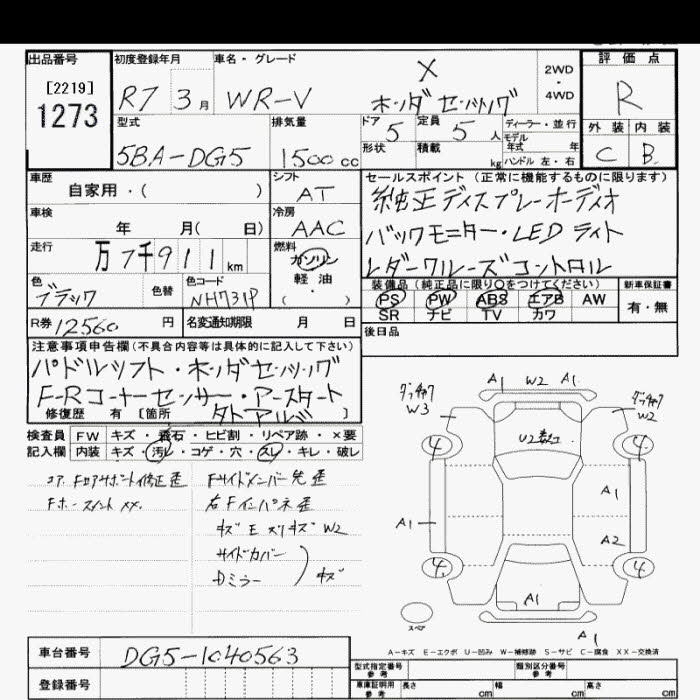 出品番号
[2219]
1273
初度登録年月
R7 3月
車名・グレード
WR-V
X
ホンダセンシング
2WD
・
4WD
評価点
R
外装 内装
C B
型式
5BA-DG5
排気量
1500cc
ドア
5
定員
5人
形状
積載
kg
ディーラー・並行
モデル年式 年
ハンドル 左・右
車歴
自家用・( )
シフト
AT
車検
年 月( 日)
冷房
AAC
走行
万7千911km
燃料
ガソリン
軽油
( ・ )
色
ブラック
色替
色コード
NH731P
R券 12560円
名変通知期限 月 日
セールスポイント (正常に機能するものに限ります)
純正ディスプレーオーディオ
バックモニター・LEDライト
レダークルーズコントロール
装備品(純正品に限り○をつけてください)
PS PW ABS エアB AW
SR ナビ TV カワ
新車保証書
有・無
後日品
注意事項申告欄(不具合内容等は具体的に記入して下さい)
パドルシフト・ホンダセンシング
F-Rコーナーセンサー・アースタート
修復歴 有 [箇所 ]
検査員記入欄
FW キズ・飛石・ヒビ割・リペア跡・×要
内装 キズ・汚レ・コゲ・穴・スレ・キレ・破レ
コア、Fロアサポート修正歪
Fサイドメンバー先歪
右Fインパネ歪
キズ E スリキズ W2
サイドカバー
Dミラー
キズ
A1 W2 A1
W3
W2
4
4
A1
A1
A2
4
4
A1
A1
スペア
A-キズ E-エクボ U-凹み W-補修跡 S-サビ C-腐食 XX-交換済
車台番号
DG5-1040563
登録番号
型式指定番号 参考
類別区分番号 参考
車庫証明用 参考
長さ cm
幅 cm
高さ cm